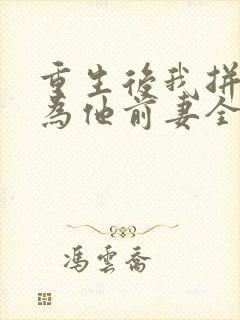 重生後我拼
為他前妻全
馮雲喬